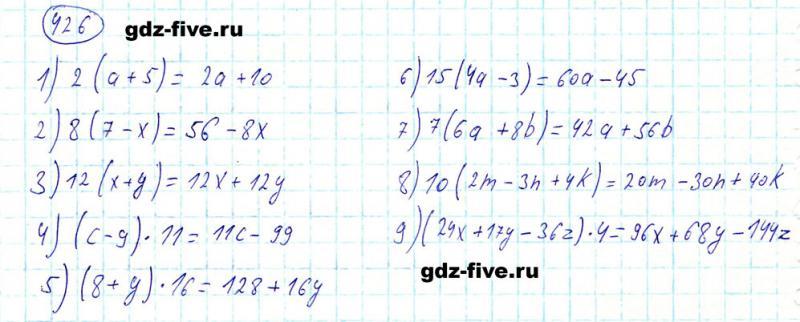 426
gdz-five.ru
1) 2(a+5) = 2a+10
2) 8(7-x) = 56-8x
3) 12(x+y) = 12x+12y
4) (c-9)·11 = 11c-99
5) (8+y)·16 = 128+16y
6) 15(4a-3) = 60a-45
7) 7(6a+8b) = 42a+56b
8) 10(2m-3n+4k) = 20m-30n+40k
9) (24x+17y-36z)·4 = 96x+68y-144z
gdz-five.ru